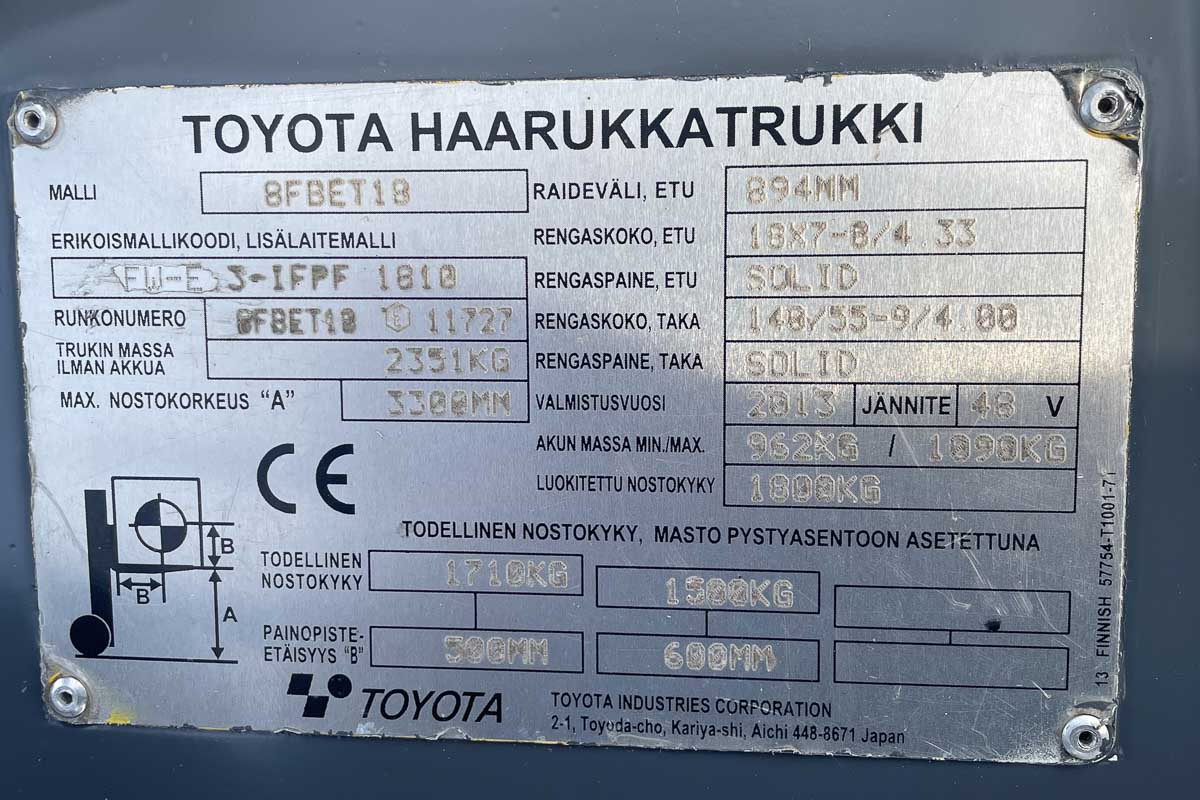 TOYOTA HAARUKKATRUKKI
MALLI 8FBET18
ERIKOISMALLIKOODI, LISÄLAITEMALLI
FW-E 3-IFPF 1810
RUNKONUMERO 8FBET18 E 11727
TRUKIN MASSA
ILMAN AKKUA 2351KG
MAX. NOSTOKORKEUS "A" 3300MM
RAIDEVÄLI, ETU 894MM
RENGASKOKO, ETU 18X7-8/4 33
RENGASPAINE, ETU SOLID
RENGASKOKO, TAKA 140/55-9/4 00
RENGASPAINE, TAKA SOLID
VALMISTUSVUOSI 2013 JÄNNITE 48 V
AKUN MASSA MIN./MAX. 962KG / 1090KG
LUOKITETTU NOSTOKYKY 1800KG
CE
B
B
A
TODELLINEN NOSTOKYKY, MASTO PYSTYASENTOON ASETETTUNA
TODELLINEN
NOSTOKYKY 1710KG 1500KG
PAINOPISTE-
ETÄISYYS "B" 500MM 600MM
TOYOTA
TOYOTA INDUSTRIES CORPORATION
2-1, Toyoda-cho, Kariya-shi, Aichi 448-8671 Japan
13 FINNISH 57754-T1001-71